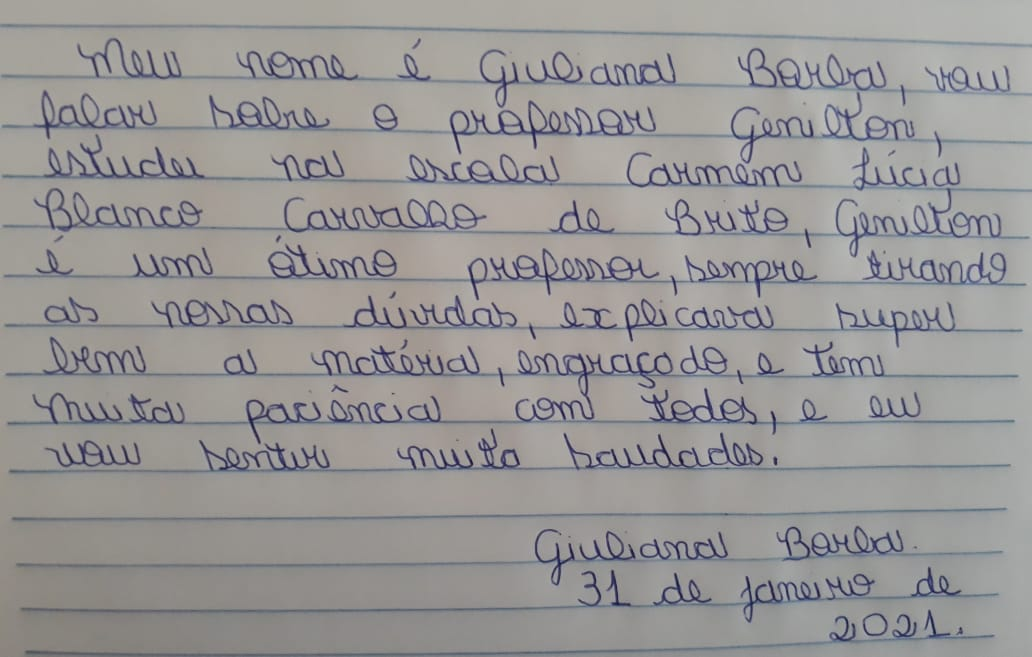 Meu nome é Giuliana Borba, vou
falar sobre o professor Genilton,
estudei na escola Carmém Lúcia
Blanco Carvalho de Brito, Genilton
é um ótimo professor, sempre tirando
as nossas dúvidas, explicava super
bem a matéria, engraçado, e tem
muita paciência com todos, e eu
vou sentir muito saudades.
Giuliana Borba.
31 de janeiro de
2021.